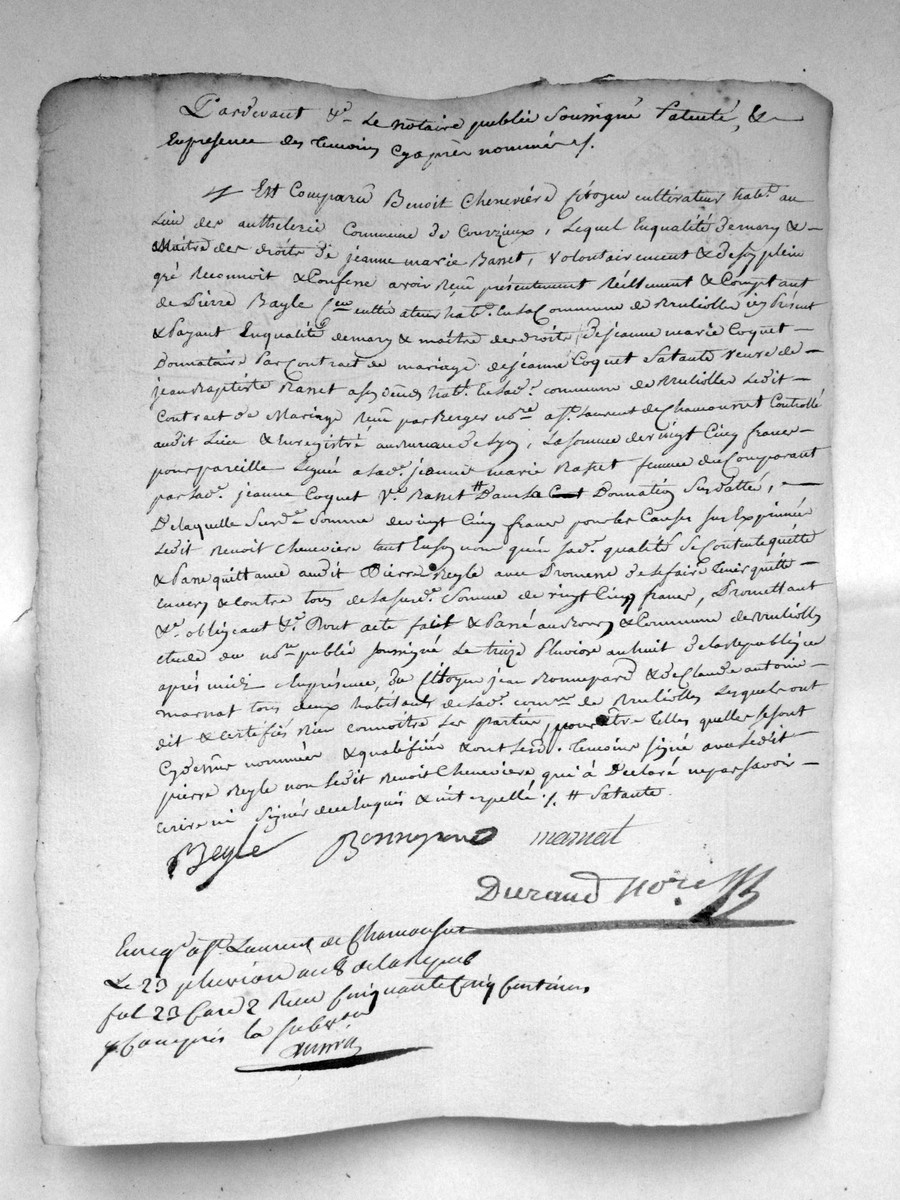 Pardevant &c. Le notaire public Soussigné Patenté, &
En presence des temoins cyaprès nommés /.
Est Comparu Benoit Chenevière Citoyen cultivateur habt. au
Lieu des commune de Courzieux, Lequel En qualité de mary &
Maitre des droits de jeanne marie Basset, volontairement & de son plein
gré Reconnoit & Confesse avoir Reçu présentement Réellement & Comptant
de Pierre Bayle Cen. cultivateur habt. En la Commune de Brulliolle icy Présent
& Payant En qualité de mary & maitre des droits de jeanne marie Coquet
Donnataire Par Contract de mariage de jeanne Coquet Sa tante veuve de
jean Baptiste Rasset habt. En lad. commune de Brulliolles Ledit
Contract de Mariage Reçu par Berger nore. a St. Laurent de Chamousset Controllé
audit Lieu & Enregistré au bureau de Lyon, La somme de vingt Cinq francs
pour pareille Leguée a lad. jeanne marie Rasset femme du Comparant
par lad. jeanne Coquet Ve. Rasset # Dans la Donnation Susdattée,
De laquelle Susde. Somme de vingt Cinq francs pour les Causes Sus Exprimées
Ledit Benoit Chenevière tant En son nom qu'en sade. qualité Se Contente quitte
& Passe quittance audit Pierre Beyle avec Promesse de le faire tenir quitte
envers & contre tous de la susde. Somme de vingt Cinq francs, Promettant
&c. obligeant &c. Dont acte fait & Passé au Bourg & Commune de Brulliolles
etude du nore. public soussigné Le treize Pluviose an huit de la Republique
après midi En présence, du Citoyen jean Bonnepard & de Claude antoine
marnat tous deux habitants de lade. comne. de Brulliolles Lesquels ont
dit & certifiés Bien connoitre Les parties, pour être telles quelles se sont
Cydessus nommées & qualifiées & ont lesd. temoins signé avec Ledit
pierre Beyle non Ledit Benoit Chenevière, qui à Declaré ne pas Savoir
écrire ni Signer de ce Enquis & interpellé ./. # Sa tante.
Beyle Bonnepard marnat
Durand Nore.
Enregé. a St. Laurent de Chamousset
Le 23 pluviose an 8 de la Repub
fol 23 Case 2 Reçu Cinquante Cinq Centimes
y Compris la subvon